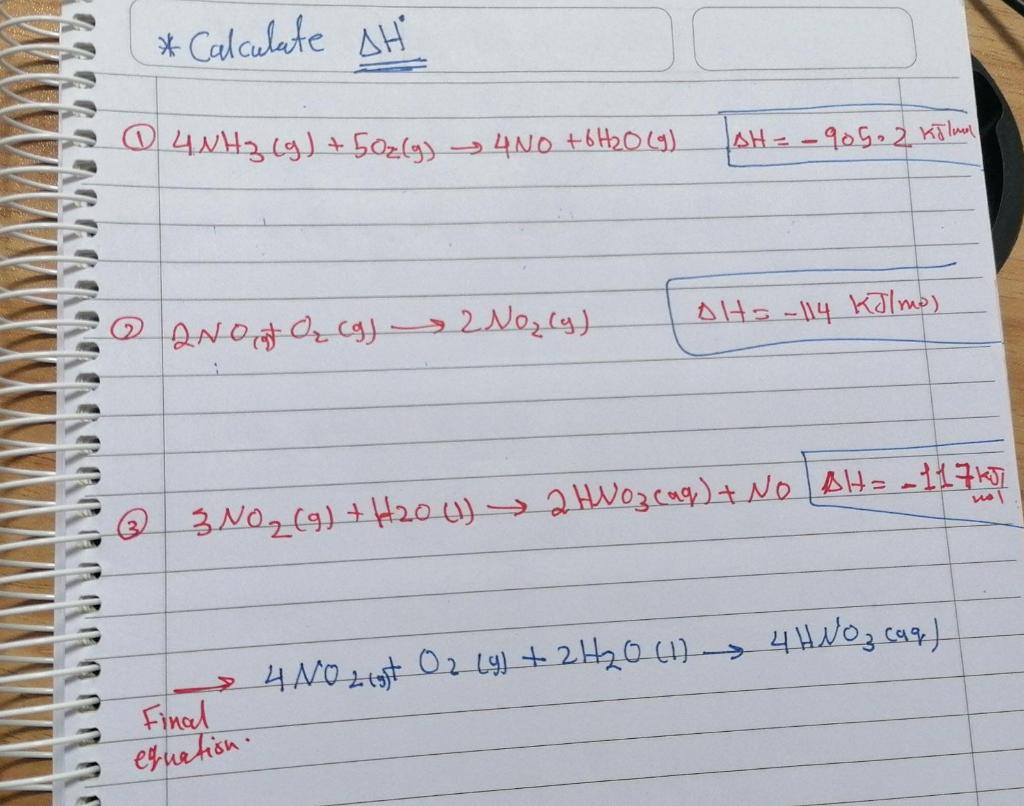 * Calculate ΔH°
① 4NH3 (g) + 5O2(g) → 4NO + 6H2O (g) ΔH = - 905.2 KJ/mol
② 2NO(g) + O2 (g) → 2 NO2 (g) ΔH = -114 KJ/mol
③ 3 NO2 (g) + H2O (l) → 2 HNO3 (aq) + NO ΔH = - 117 KJ/mol
→ 4 NO2 (g) + O2 (g) + 2 H2O (l) → 4 HNO3 (aq)
Final
equation.